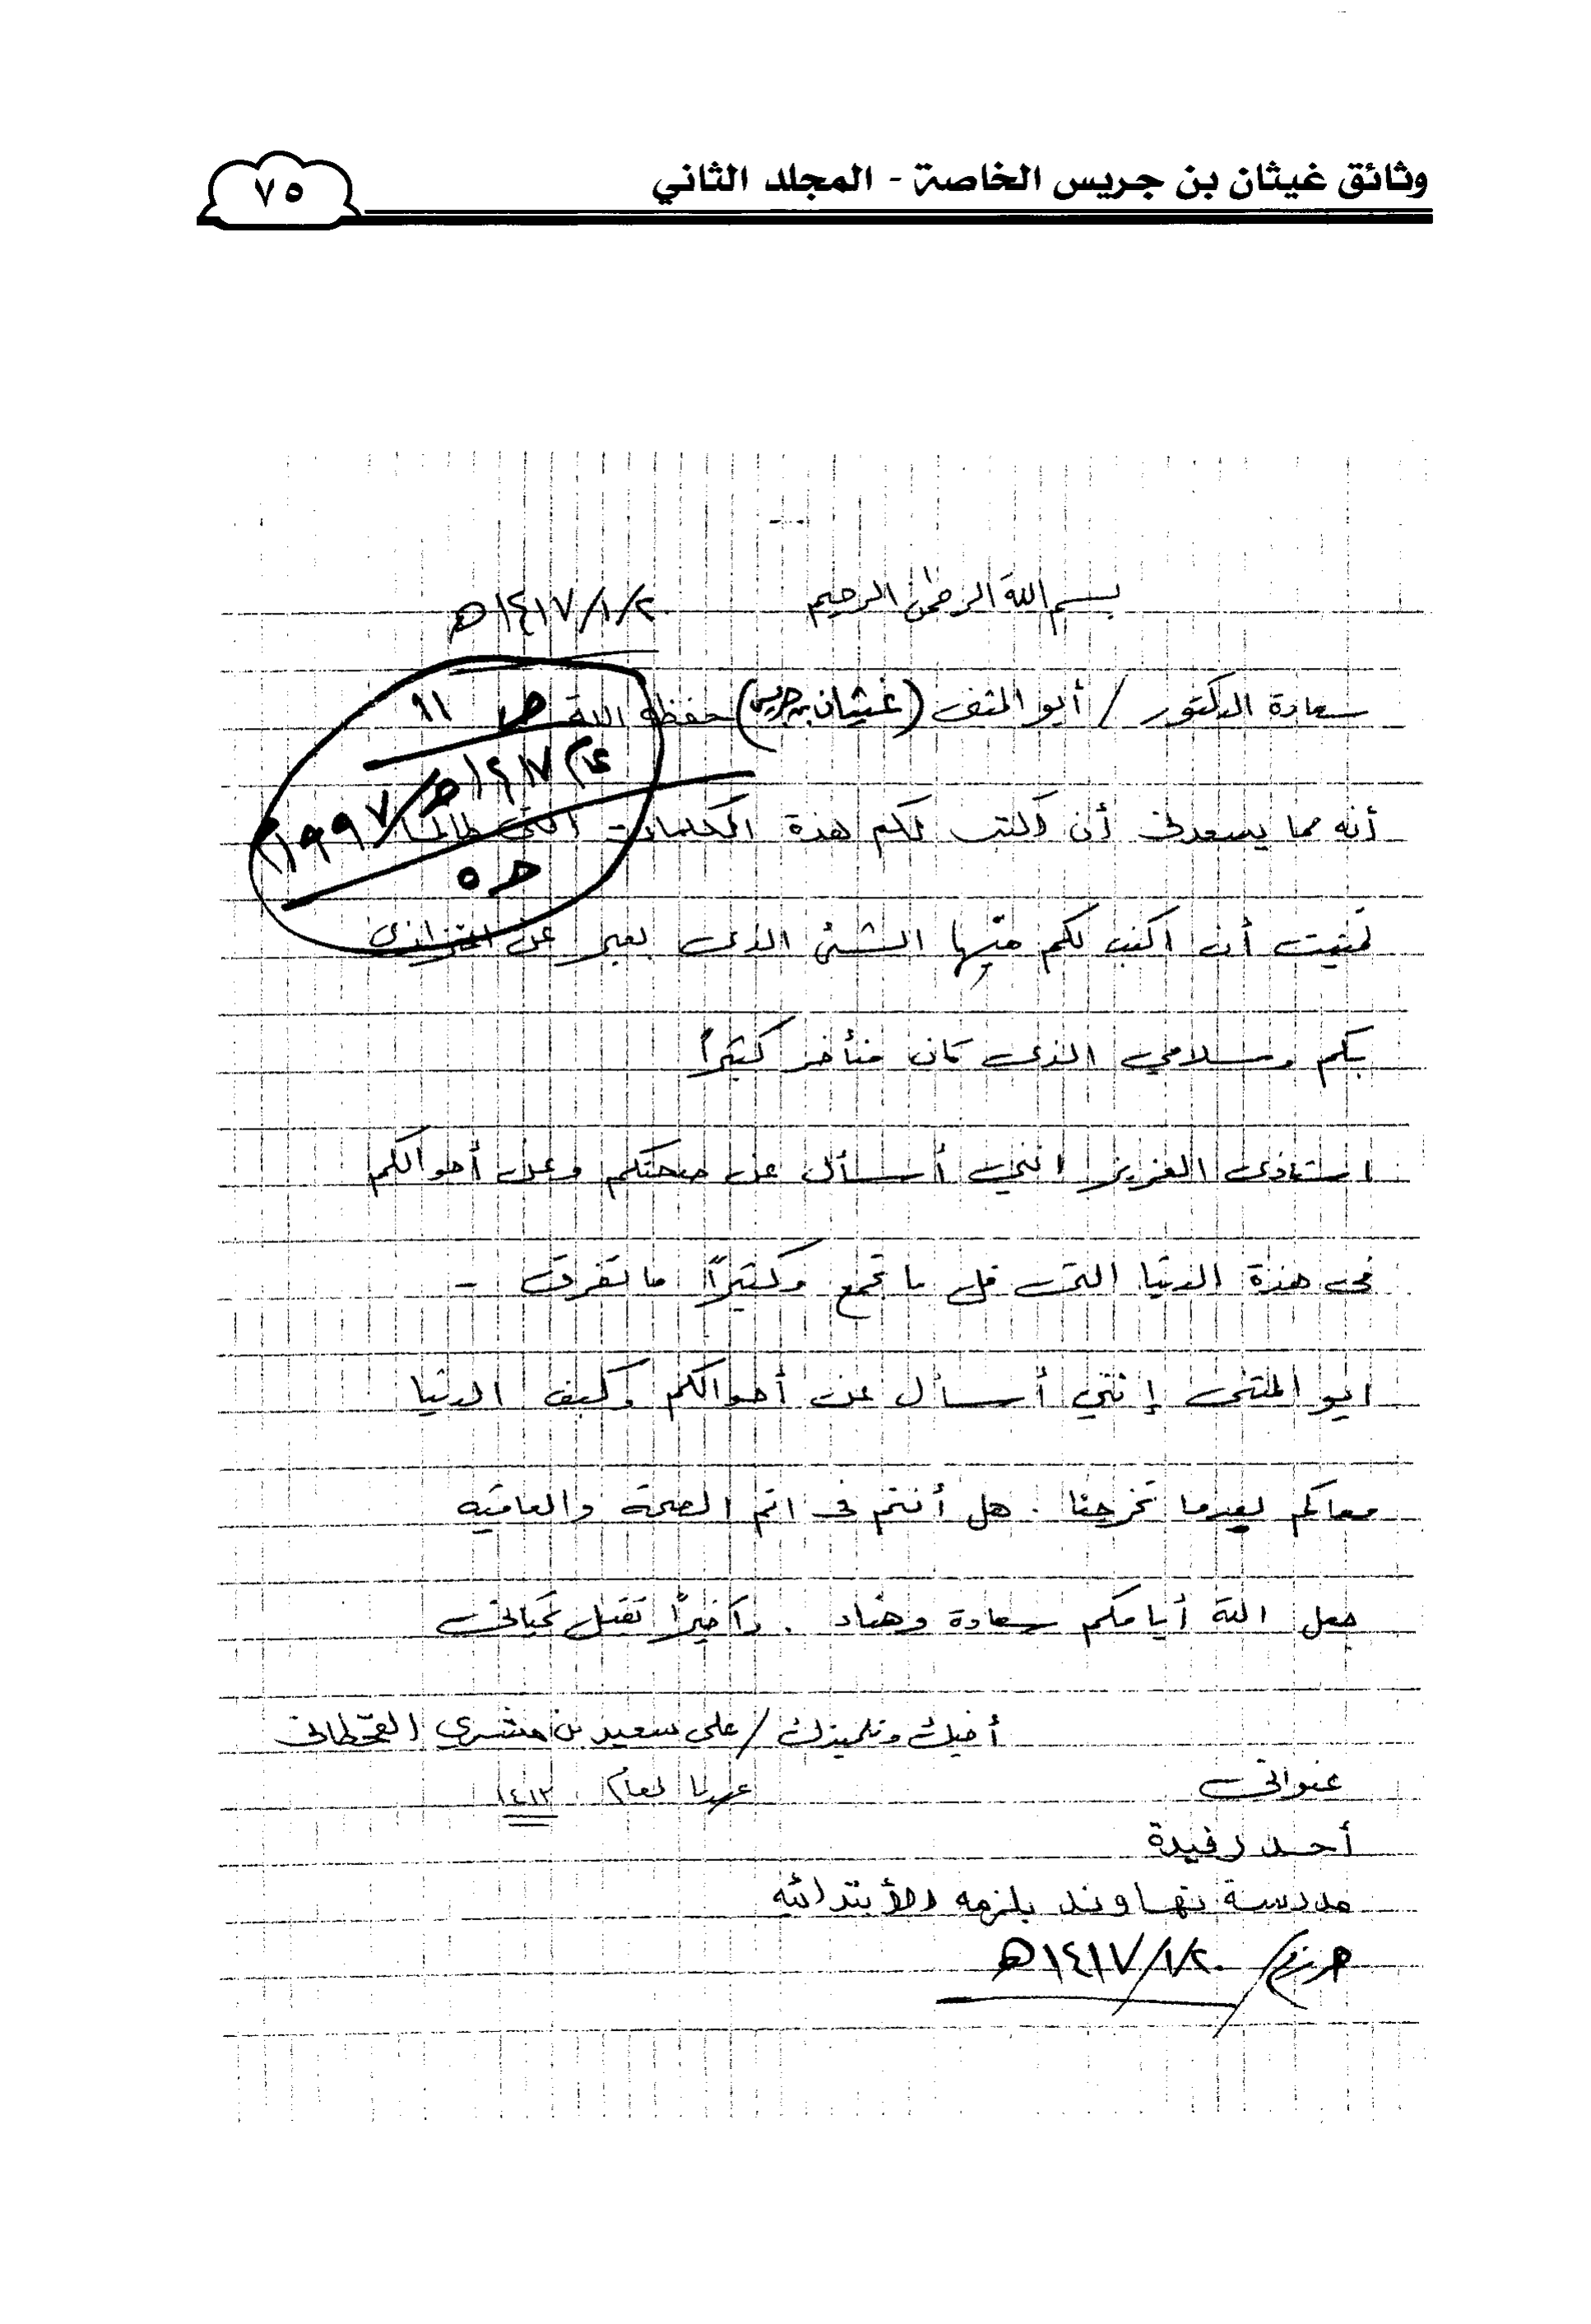 وثائق غيثان بن جريس الخاصة - المجلد الثاني
٧٥
بسم الله الرحمن الرحيم
١٤١٧/١/٢٠هـ
سعادة الدكتور / أبو المثنى (غيثان بن جريس) حفظه الله
ص ١١
عام ١٤١٧هـ/١٩٩٧م
أنه مما يسعدني أن أكتب لكم هذة الكلمات التي طالما
تمنيت أن اكتب لكم فيها الشئ الذي يعبر عن اعتزازي
بكم وسلامي الذي كان متأخر كثيراً
استاذي العزيز انني أسأل عن صحتكم وعن أحوالكم
في هذة الدنيا التي قل ما تجمع وكثيراً ما تفرق -
ابو المثنى إنني أسأل عن أحوالكم وكيف الدنيا
معاكم بعدما تخرجنا . هل أنتم في اتم الصحة والعافيه
جعل الله أيامكم سعادة وهناء . وأخيراً تقبل تحياتي
أخيك وتلميذك / علي سعيد بن مشري القحطاني
عنواني
لعام ١٤١٢
أحد رفيدة
مدرسة نهاوند بلزمه الأبتدائيه
حرر في / ١٤١٧/١/٢٠هـ